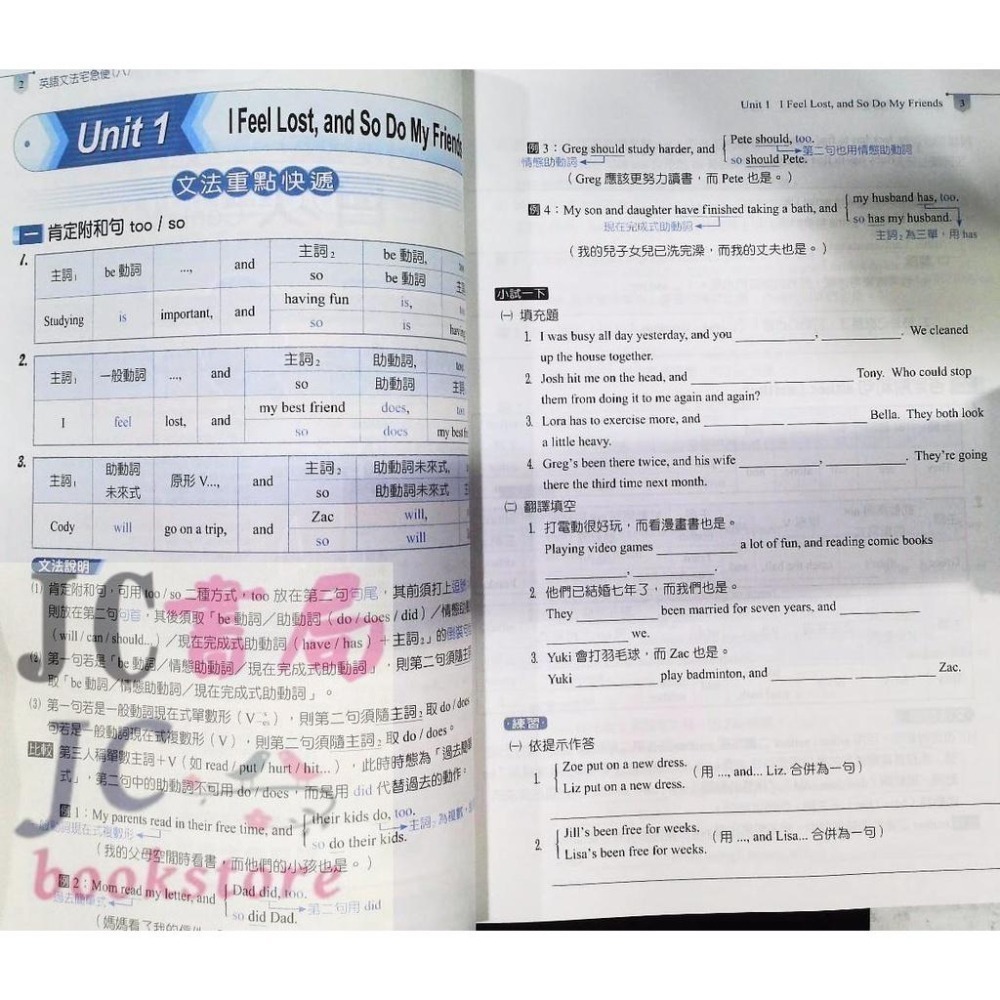 2 英語文法宅急便(八)
Unit 1 I Feel Lost, and So Do My Friends
文法重點快遞
一 肯定附和句 too / so
1.
主詞1 be 動詞 ..., and 主詞2 be 動詞,
so be 動詞
Studying is important, and having fun is,
so is
2.
主詞1 一般動詞 ..., and 主詞2 助動詞,
so 助動詞
I feel lost, and my best friend does,
so does
3.
主詞1 助動詞未來式 原形 V..., and 主詞2 助動詞未來式,
so 助動詞未來式
Cody will go on a trip, and Zac will,
so will
文法說明
(1) 肯定附和句,可用 too / so 二種方式,too 放在第二句句尾,其前須打上逗點,
則放在第二句句首,其後須取「be 動詞/助動詞(do / does / did)/情態
(will / can / should...)/現在完成式助動詞(have / has)+主詞2」的倒裝
(2) 第一句若是「be 動詞/情態助動詞/現在完成式助動詞」,則第二句須隨主
取「be 動詞/情態助動詞/現在完成式助動詞」。
(3) 第一句若是一般動詞現在式單數形(V),則第二句須隨主詞2 取 do / does
句若是一般動詞現在式複數形(V),則第二句須隨主詞2 取 do / does。
比較 第三人稱單數主詞+V(如 read / put / hurt / hit...),此時時態為「過去
式」,第二句中的助動詞不可用 do / does,而是用 did 代替過去的動作。
例 1:My parents read in their free time, and their kids do, too.
so do their kids.
動詞現在式複數形 主詞2 為複數,
(我的父母空閒時看書,而他們的小孩也是。)
例 2:Mom read my letter, and Dad did, too.
so did Dad.
過去簡單式 第二句用 did
(媽媽看了我的信件
JC書局
JC
bookstore
Unit 1 I Feel Lost, and So Do My Friends 3
例 3:Greg should study harder, and Pete should, too.
so should Pete.
情態助動詞 第二句也用情態助動詞
(Greg 應該更努力讀書,而 Pete 也是。)
例 4:My son and daughter have finished taking a bath, and my husband has, too.
so has my husband.
現在完成式助動詞 主詞2 為三單,用 has
(我的兒子女兒已洗完澡,而我的丈夫也是。)
小試一下
㈠ 填充題
1. I was busy all day yesterday, and you ________, ________. We cleaned
up the house together.
2. Josh hit me on the head, and ________ ________ Tony. Who could stop
them from doing it to me again and again?
3. Lora has to exercise more, and ________ ________ Bella. They both look
a little heavy.
4. Greg's been there twice, and his wife ________, ________. They're going
there the third time next month.
㈡ 翻譯填空
1. 打電動很好玩,而看漫畫書也是。
Playing video games ________ a lot of fun, and reading comic books
________, ________.
2. 他們已結婚七年了,而我們也是。
They ________ been married for seven years, and ________
________ we.
3. Yuki 會打羽毛球,而 Zac 也是。
Yuki ________ play badminton, and ________ ________ Zac.
練習
㈠ 依提示作答
1. Zoe put on a new dress.
Liz put on a new dress.
(用 ..., and... Liz. 合併為一句)
2. Jill's been free for weeks.
Lisa's been free for weeks.
(用 ..., and Lisa... 合併為一句)